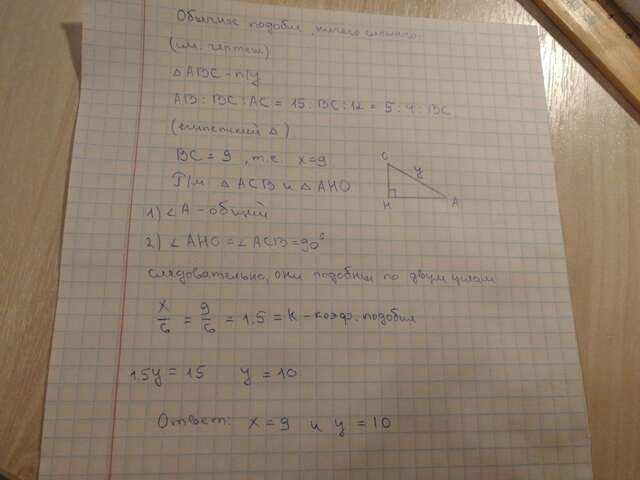 Обычное подобие, ничего сложного.
(см. чертеж)
△ABC - п/у
AB : BC : AC = 15 : BC : 12 = 5 : 4 : BC
(египетский △)
BC = 9, т.е. x = 9
Р/м. △ ACB и △ AHO
1) ∠A - общий
2) ∠ AHO = ∠ ACB = 90°
следовательно, они подобны по двум углам
x/6 = 9/6 = 1.5 = k - коэф. подобия
1.5y = 15 y = 10
Ответ: x = 9 и y = 10
C
y
H
A